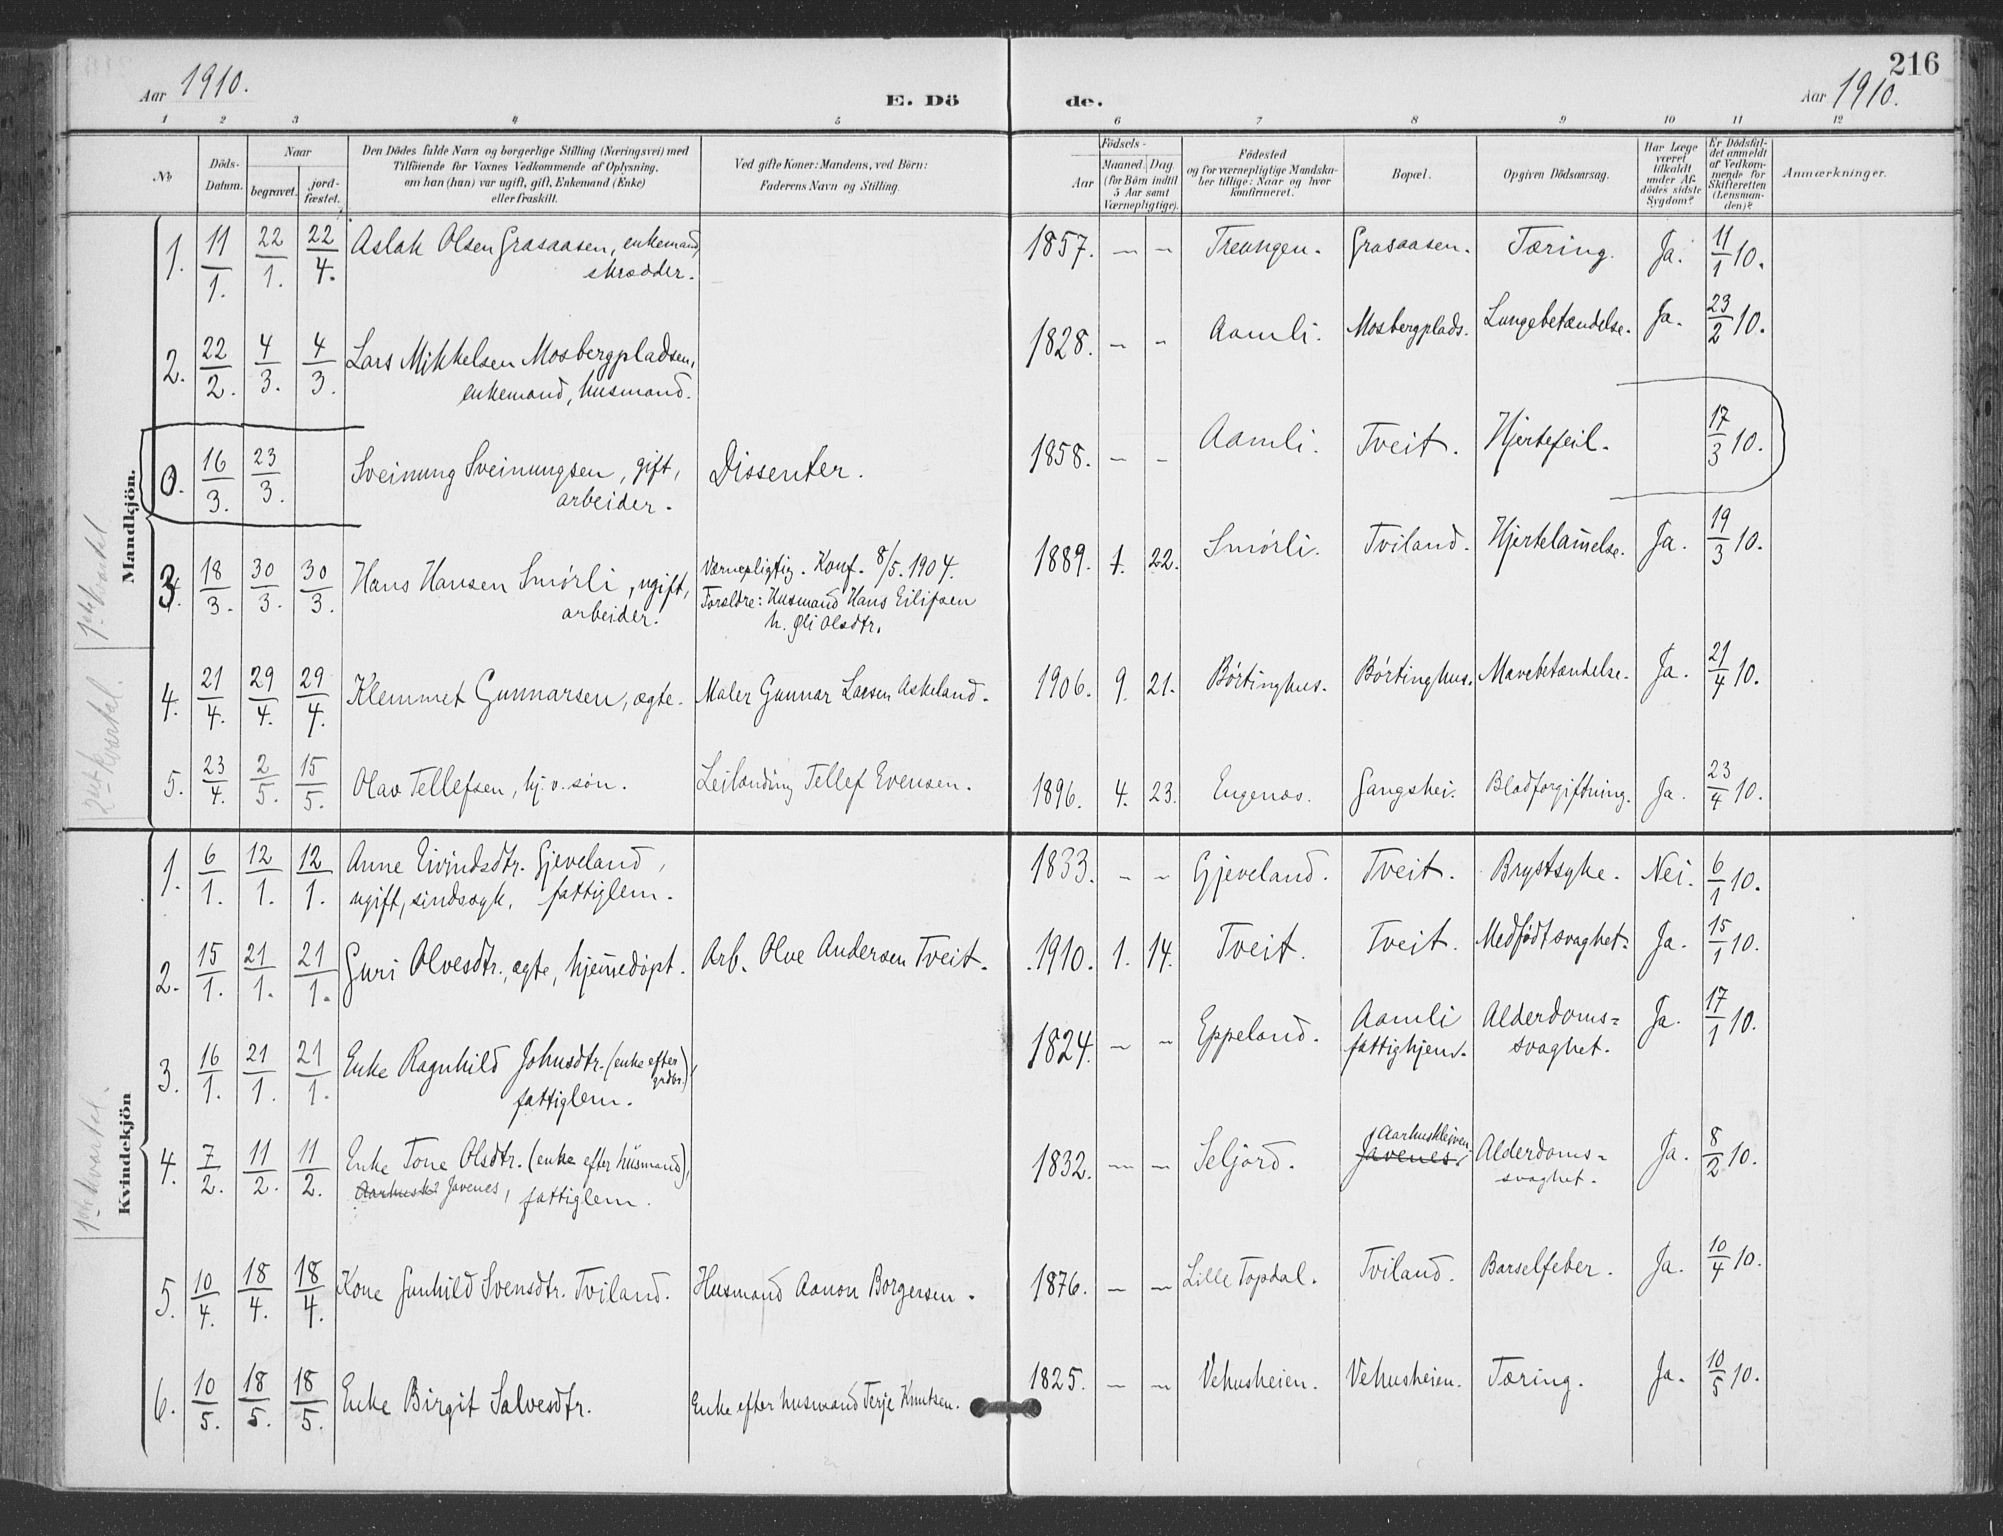 216
Aar 1910.
E. Dö
de.
Aar 1910.
1 2 3 4 5 6 7 8 9 10 11 12
No.
Döds-
Datum.
Naar
begravet.
jord-
fæstet.
Den Dödes fulde Navn og borgerlige Stilling (Næringsvei) med
Tilföiende for Voxnes Vedkommende af Oplysning,
om han (hun) var ugift, gift, Enkemand (Enke)
eller fraskilt.
Ved gifte Koner: Mandens, ved Börn:
Faderens Navn og Stilling.
Födsels-
Aar
Maaned.
Dag
(for Börn indtil
5 Aar samt
Værnepligtige).
Födested
og for værnepligtige Mandska-
ber tillige: Naar og hvor
konfirmeret.
Bopæl.
Opgiven Dödsaarsag.
Har Læge
været
tilkaldt
under Af-
dödes sidste
Sygdom?
Er Dödsfal-
det anmeldt
af Vedkom-
mende for
Skifteretten
(Lensman-
den)?
Anmærkninger.
Mandkjön.
1ste Kvartal
2det Kvartal.
1. 11/1. 22/1. 22/4. Aslak Olsen Grasaasen, enkemand, 1857. — — Treungen. Grasaasen. Tæring. Ja. 11/1 10.
skrædder.
2. 22/2. 4/3. 4/3. Lars Mikkelsen Mosbergpladsen, 1828. — — Aamli. Mosbergplads. Lungebetændelse. Ja. 23/2 10.
enkemand, husmand.
0. 16/3. 23/3. Sveinung Sveinungsen, gift, Dissenter. 1858. — — Aamli. Tveit. Hjertefeil. 17/3 10.
arbeider.
3. 18/3. 30/3. 30/3. Hans Hansen Smørli, ugift, Værnepligtig. Konf. 8/5. 1904. 1889. 1. 22. Smørli. Tviland. Hjertelam̄else. Ja. 19/3 10.
arbeider. Forældre: Husmand Hans Eilifsen
h. Øli Olsdtr.
4. 21/4. 29/4. 29/4. Klemmet Gunnarsen, ægte. Maler Gunnar Larsen Askeland. 1906. 9. 21. Børtinghus. Børtinghus. Mavebetændelse. Ja. 21/4 10.
5. 23/4. 2/5. 15/5. Olav Tellefsen, hj. v. søn. Leilænding Tellef Evensen. 1896. 4. 23. Engenæs. Gangshei. Blodforgiftning. Ja. 23/4 10.
Kvindekjön
1ste Kvartal.
1. 6/1. 12/1. 12/1. Anne Eivindsdtr. Gjeveland, 1833. — — Gjeveland. Tveit. Brystsyke. Nei. 6/1 10.
ugift, sindssyk, fattiglem.
2. 15/1. 21/1. 21/1. Guri Olvesdtr., ægte, hjem̄edøpt. Arb. Olve Andersen Tveit. 1910. 1. 14. Tveit. Tveit. Medfødt svaghet. Ja. 15/1 10.
3. 16/1. 21/1. 21/1. Enke Ragnhild Johnsdtr. (enke efter grdbr.), 1824. — — Eppeland. Aamli Alderdoms= Ja. 17/1 10.
fattiglem. fattighjem. svaghet.
4. 7/2. 11/2. 11/2. Enke Tone Olsdtr. (enke efter husmand), 1832. — — Seljord. Aarhuskleiven Javenes. Alderdoms= Ja. 8/2 10.
Javenes, fattiglem. svaghet.
5. 10/4. 18/4. 18/4. Kone Gunhild Svensdtr. Tviland. Husmand Aanon Borgersen. 1876. — — Lille Topdal. Tviland. Barselfeber. Ja. 10/4 10.
6. 10/5. 18/5. 18/5. Enke Birgit Salvesdtr. Enke efter husmand Terje Knutsen. 1825. — — Vehusheien. Vehusheien. Tæring. Ja. 10/5 10.